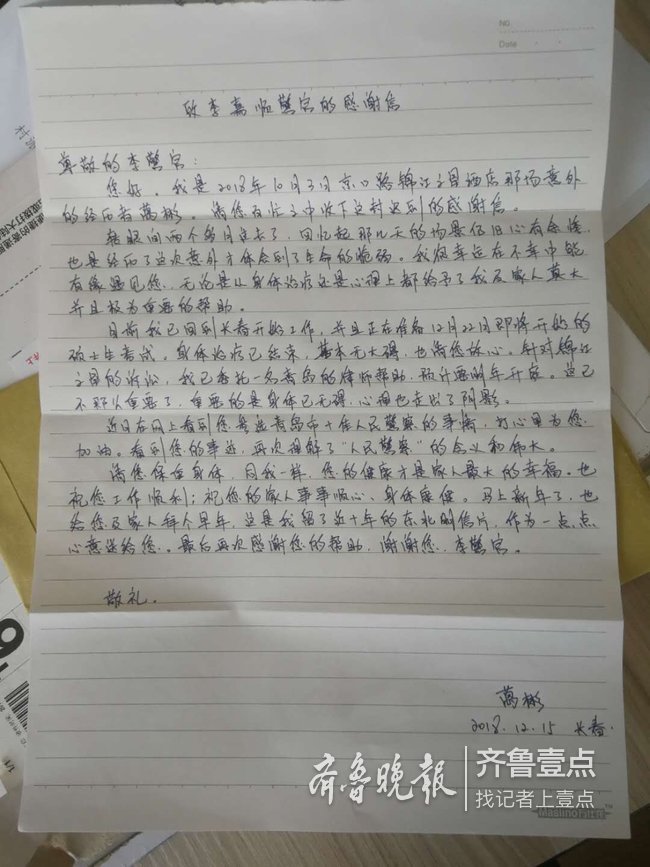 No
Date
致李嘉顺警官的感谢信
尊敬的李警官：
您好，我是2018年10月3日京口路锦江之星酒店那场意外
的经历者葛彬。请您百忙之中收下这封迟到的感谢信。
转眼间两个多月过去了，回忆起那几天的场景依旧心有余悸，
也是经历了这次意外才体会到了生命的脆弱。我很幸运在不幸中能
有缘遇见您，无论是从身体治疗还是心理上都给予了我及家人莫大
并且极为重要的帮助。
目前我已回到长春开始工作，并且正在准备12月22日即将开始的
硕士生考试，身体治疗已结束，基本无大碍，也请您放心。针对锦江
之星的诉讼，我已委托一名青岛的律师帮助，预计要明年开庭。这已
不那么重要了，重要的是身体已无碍，心理也走出了阴影。
近日在网上看到您竞选青岛市十佳人民警察的事情，打心里为您
加油。看到您的事迹，再次理解了“人民警察”的含义和伟大。
请您保重身体，同我一样，您的健康才是家人最大的幸福。也
祝您工作顺利；祝您的家人事事顺心、身体康健。马上新年了，也
给您及家人拜个早年，这是我留了近十年的东北明信片，作为一点点
心意送给您。最后再次感谢您的帮助，谢谢您，李警官。
敬礼。
葛彬
2018.12.15 长春.
齐鲁晚报
齐鲁壹点
找记者上壹点